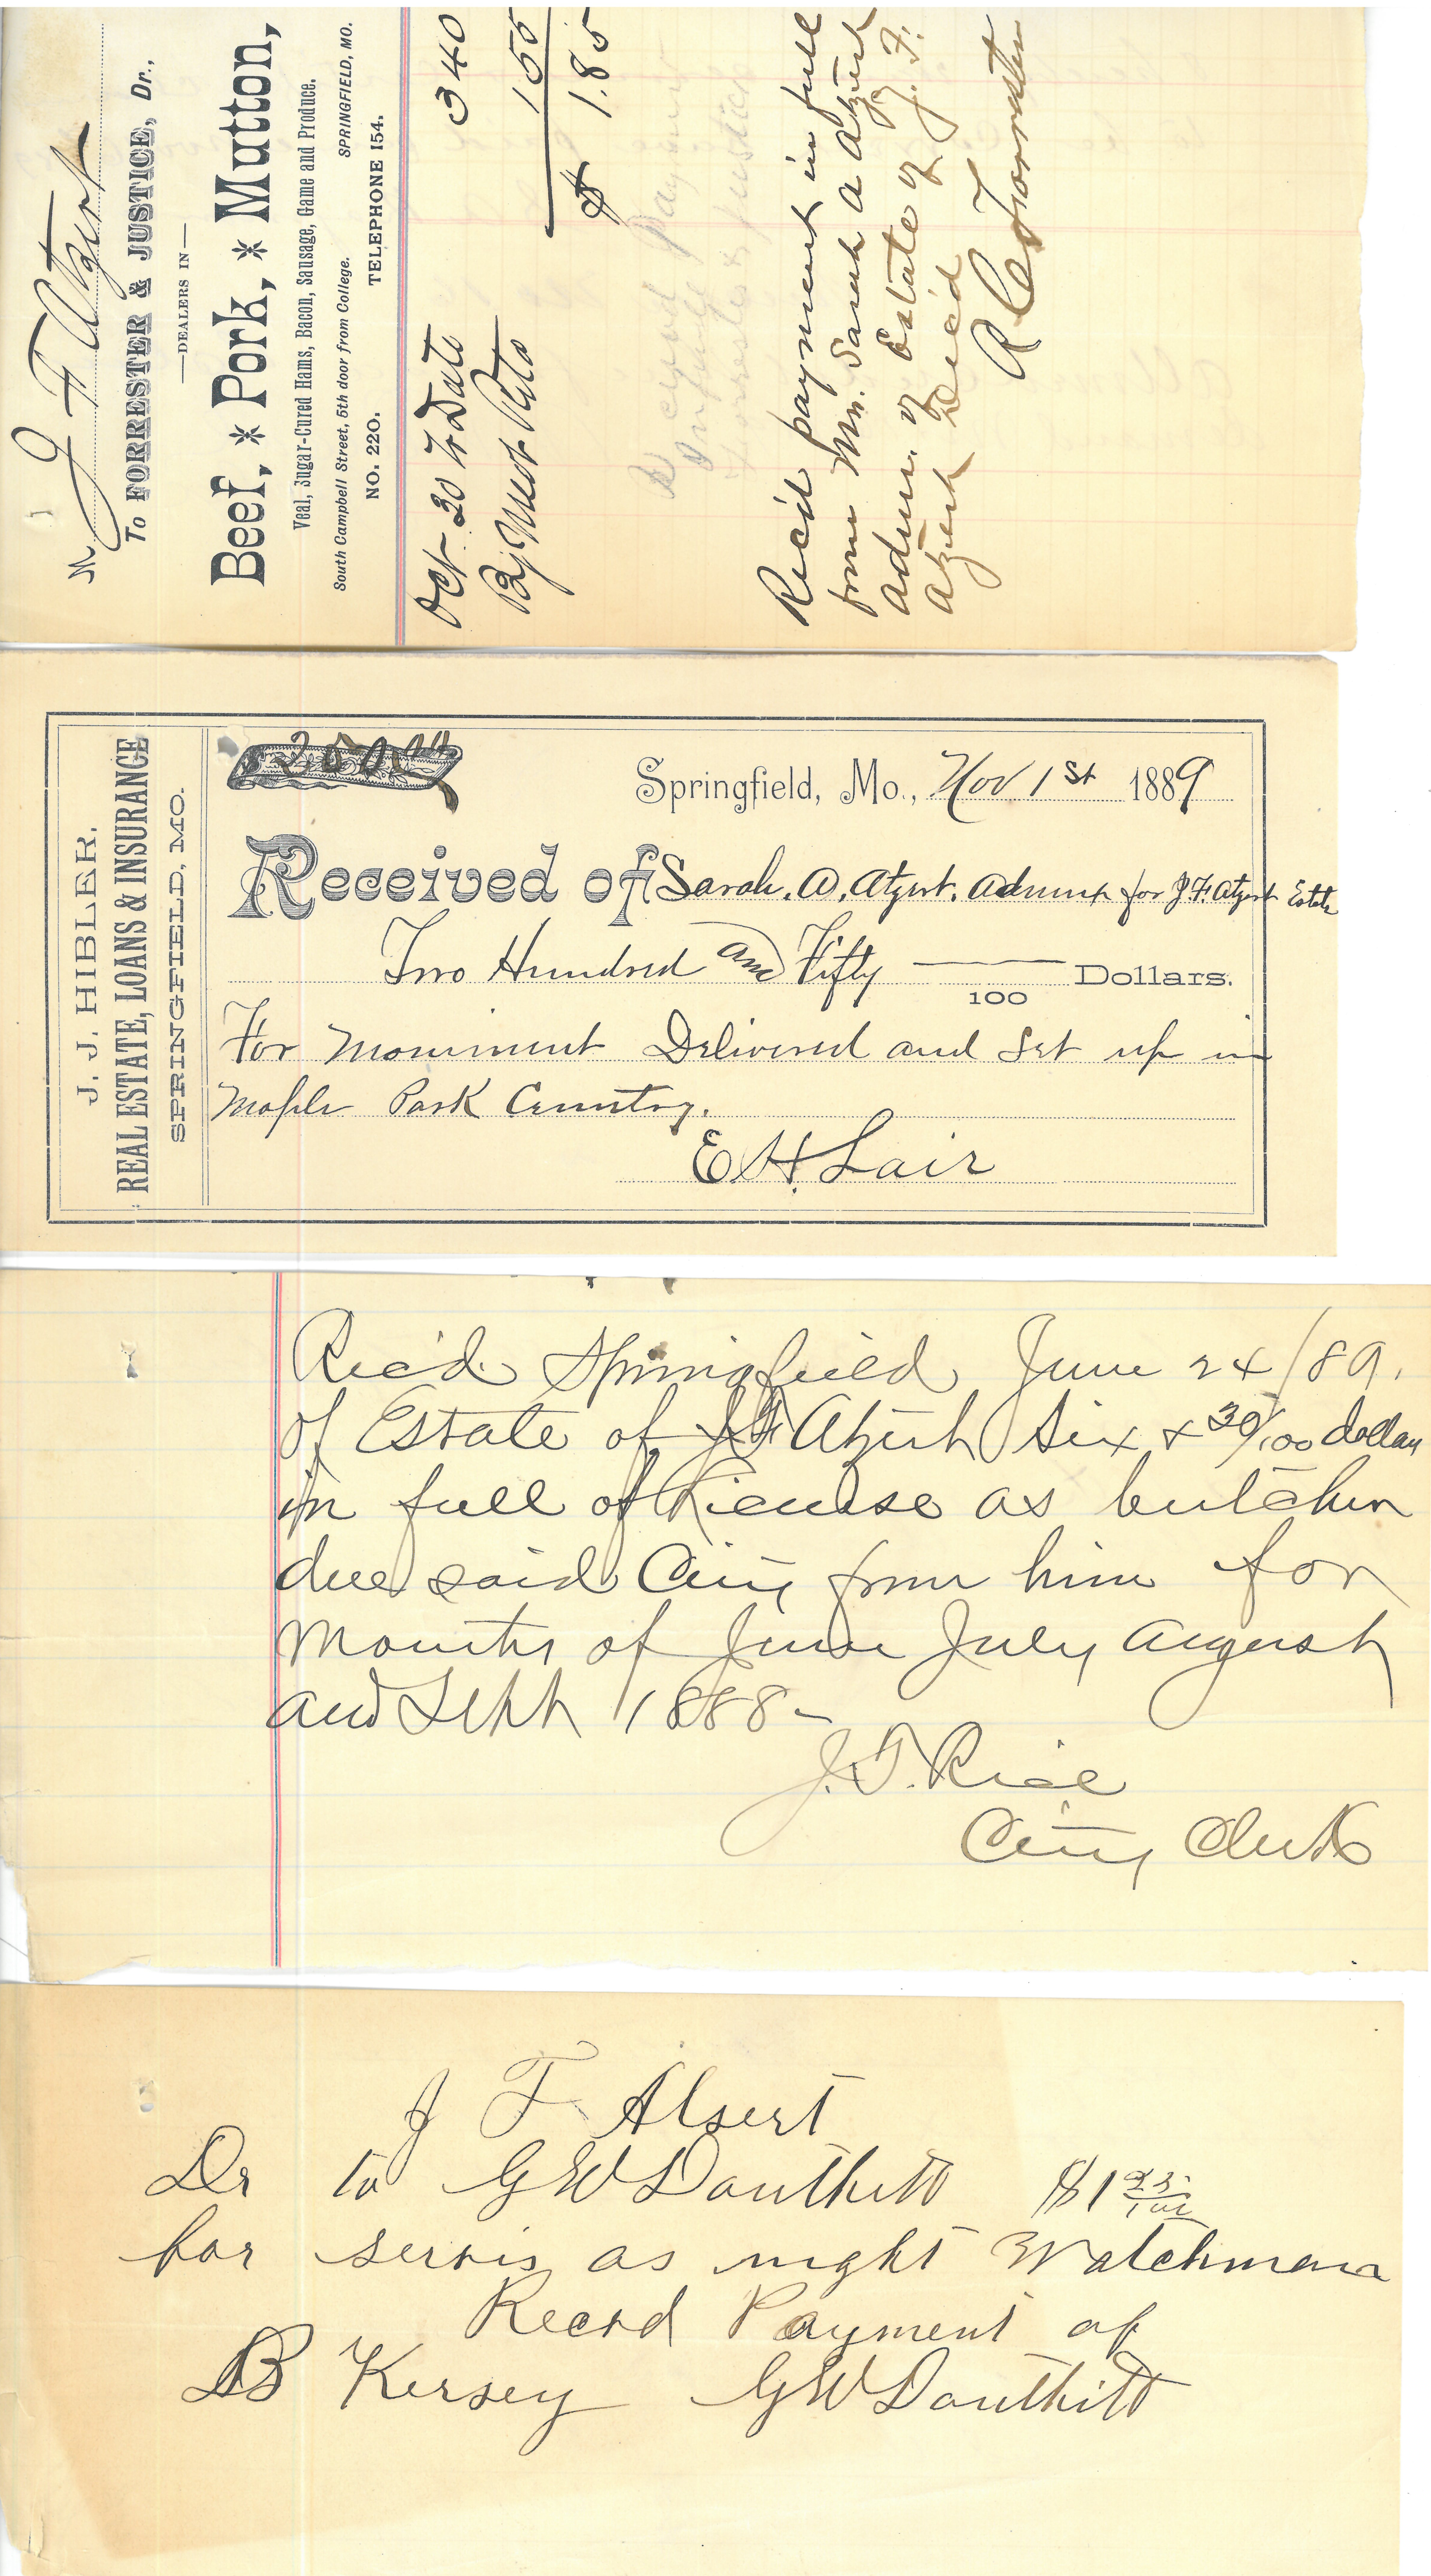 M J F Atzert
To FORRESTER & JUSTICE, Dr.,
—DEALERS IN—
Beef, * Pork, * Mutton,
Veal, Sugar-Cured Hams, Bacon, Sausage, Game and Produce.
South Campbell Street, 5th door from College.
NO. 220. TELEPHONE 154. SPRINGFIELD, MO.
Oct 20 To Date 3 40
By Meat 155
$ 1.85
Rec'd payment in full
from Mrs. Sarah A Atzert
admr. of Estate of J. F.
Atzert Dec'd
J. J. HIBLER.
REAL ESTATE, LOANS & INSURANCE
SPRINGFIELD, MO.
Springfield, Mo., Nov 1st 1889
Received of Sarah. A. Atzert. Admnx for J. F. Atzert Estate
Two Hundred and Fifty 100 Dollars.
For Monument Delivered and Set up in
Maple Park Cemetry.
E. H. Lair
Rec'd. Springfield June 24/89.
of Estate of J F Atzert Six & 30/100 dollars
in full of License as butcher
due said City from him for
Months of June July August
and Sept 1888-
J. T. Rice
City Clerk
J F Alsert
Dr to G W Douthitt $1 25/100
for servis as night Watchman
Recvd Payment of
B Kersey G W Douthitt